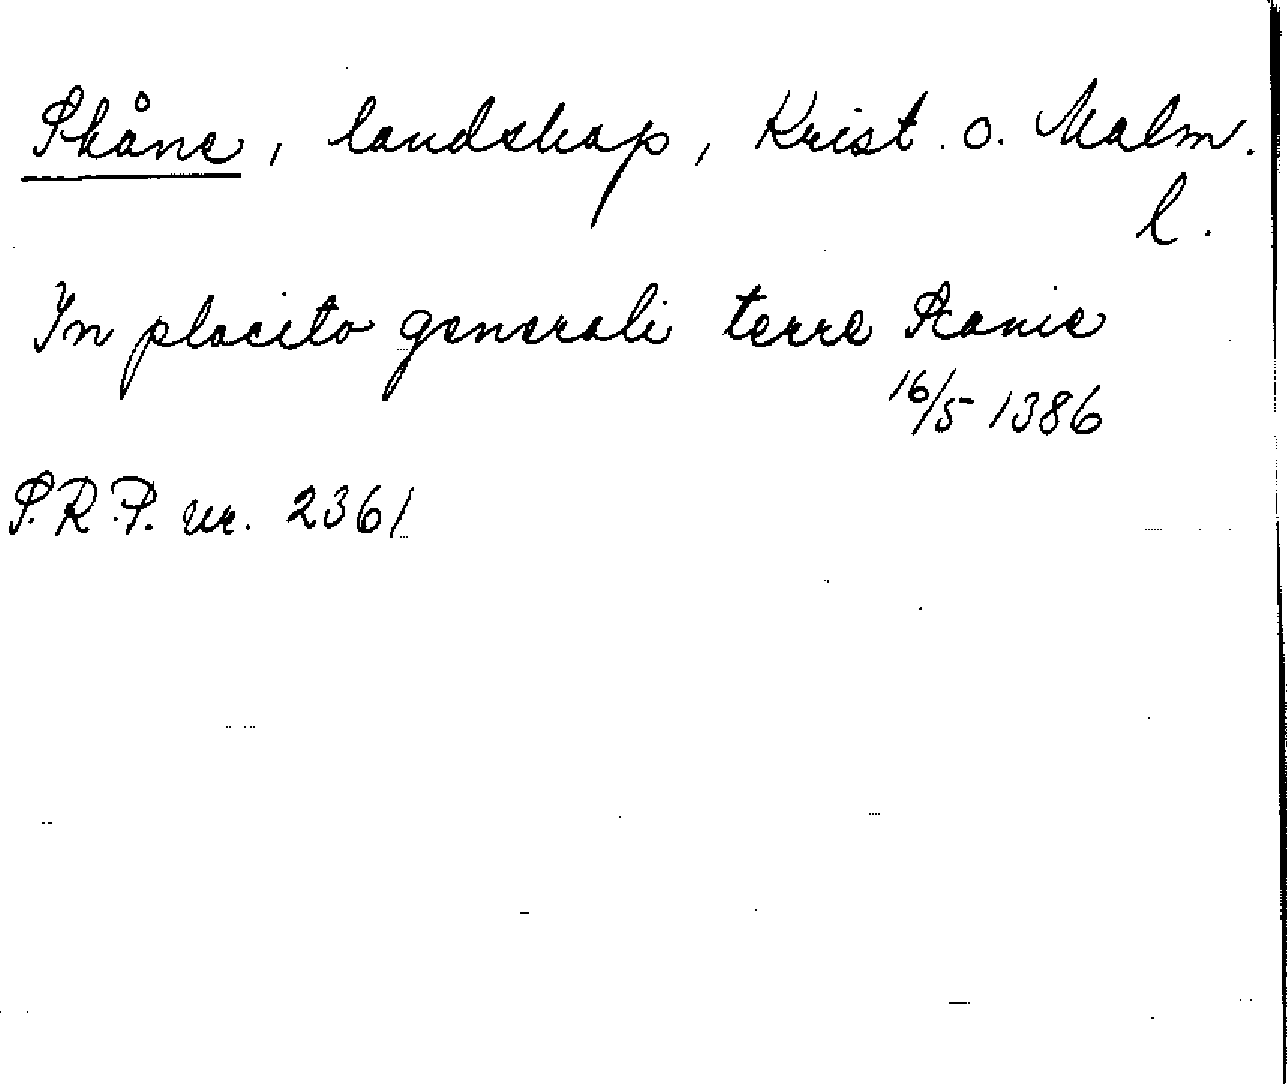 Skåne, landskap, Krist. o. Malm.
l.
In placito generali terre Scanie
16/5 1386
S.R.P. nr. 2361